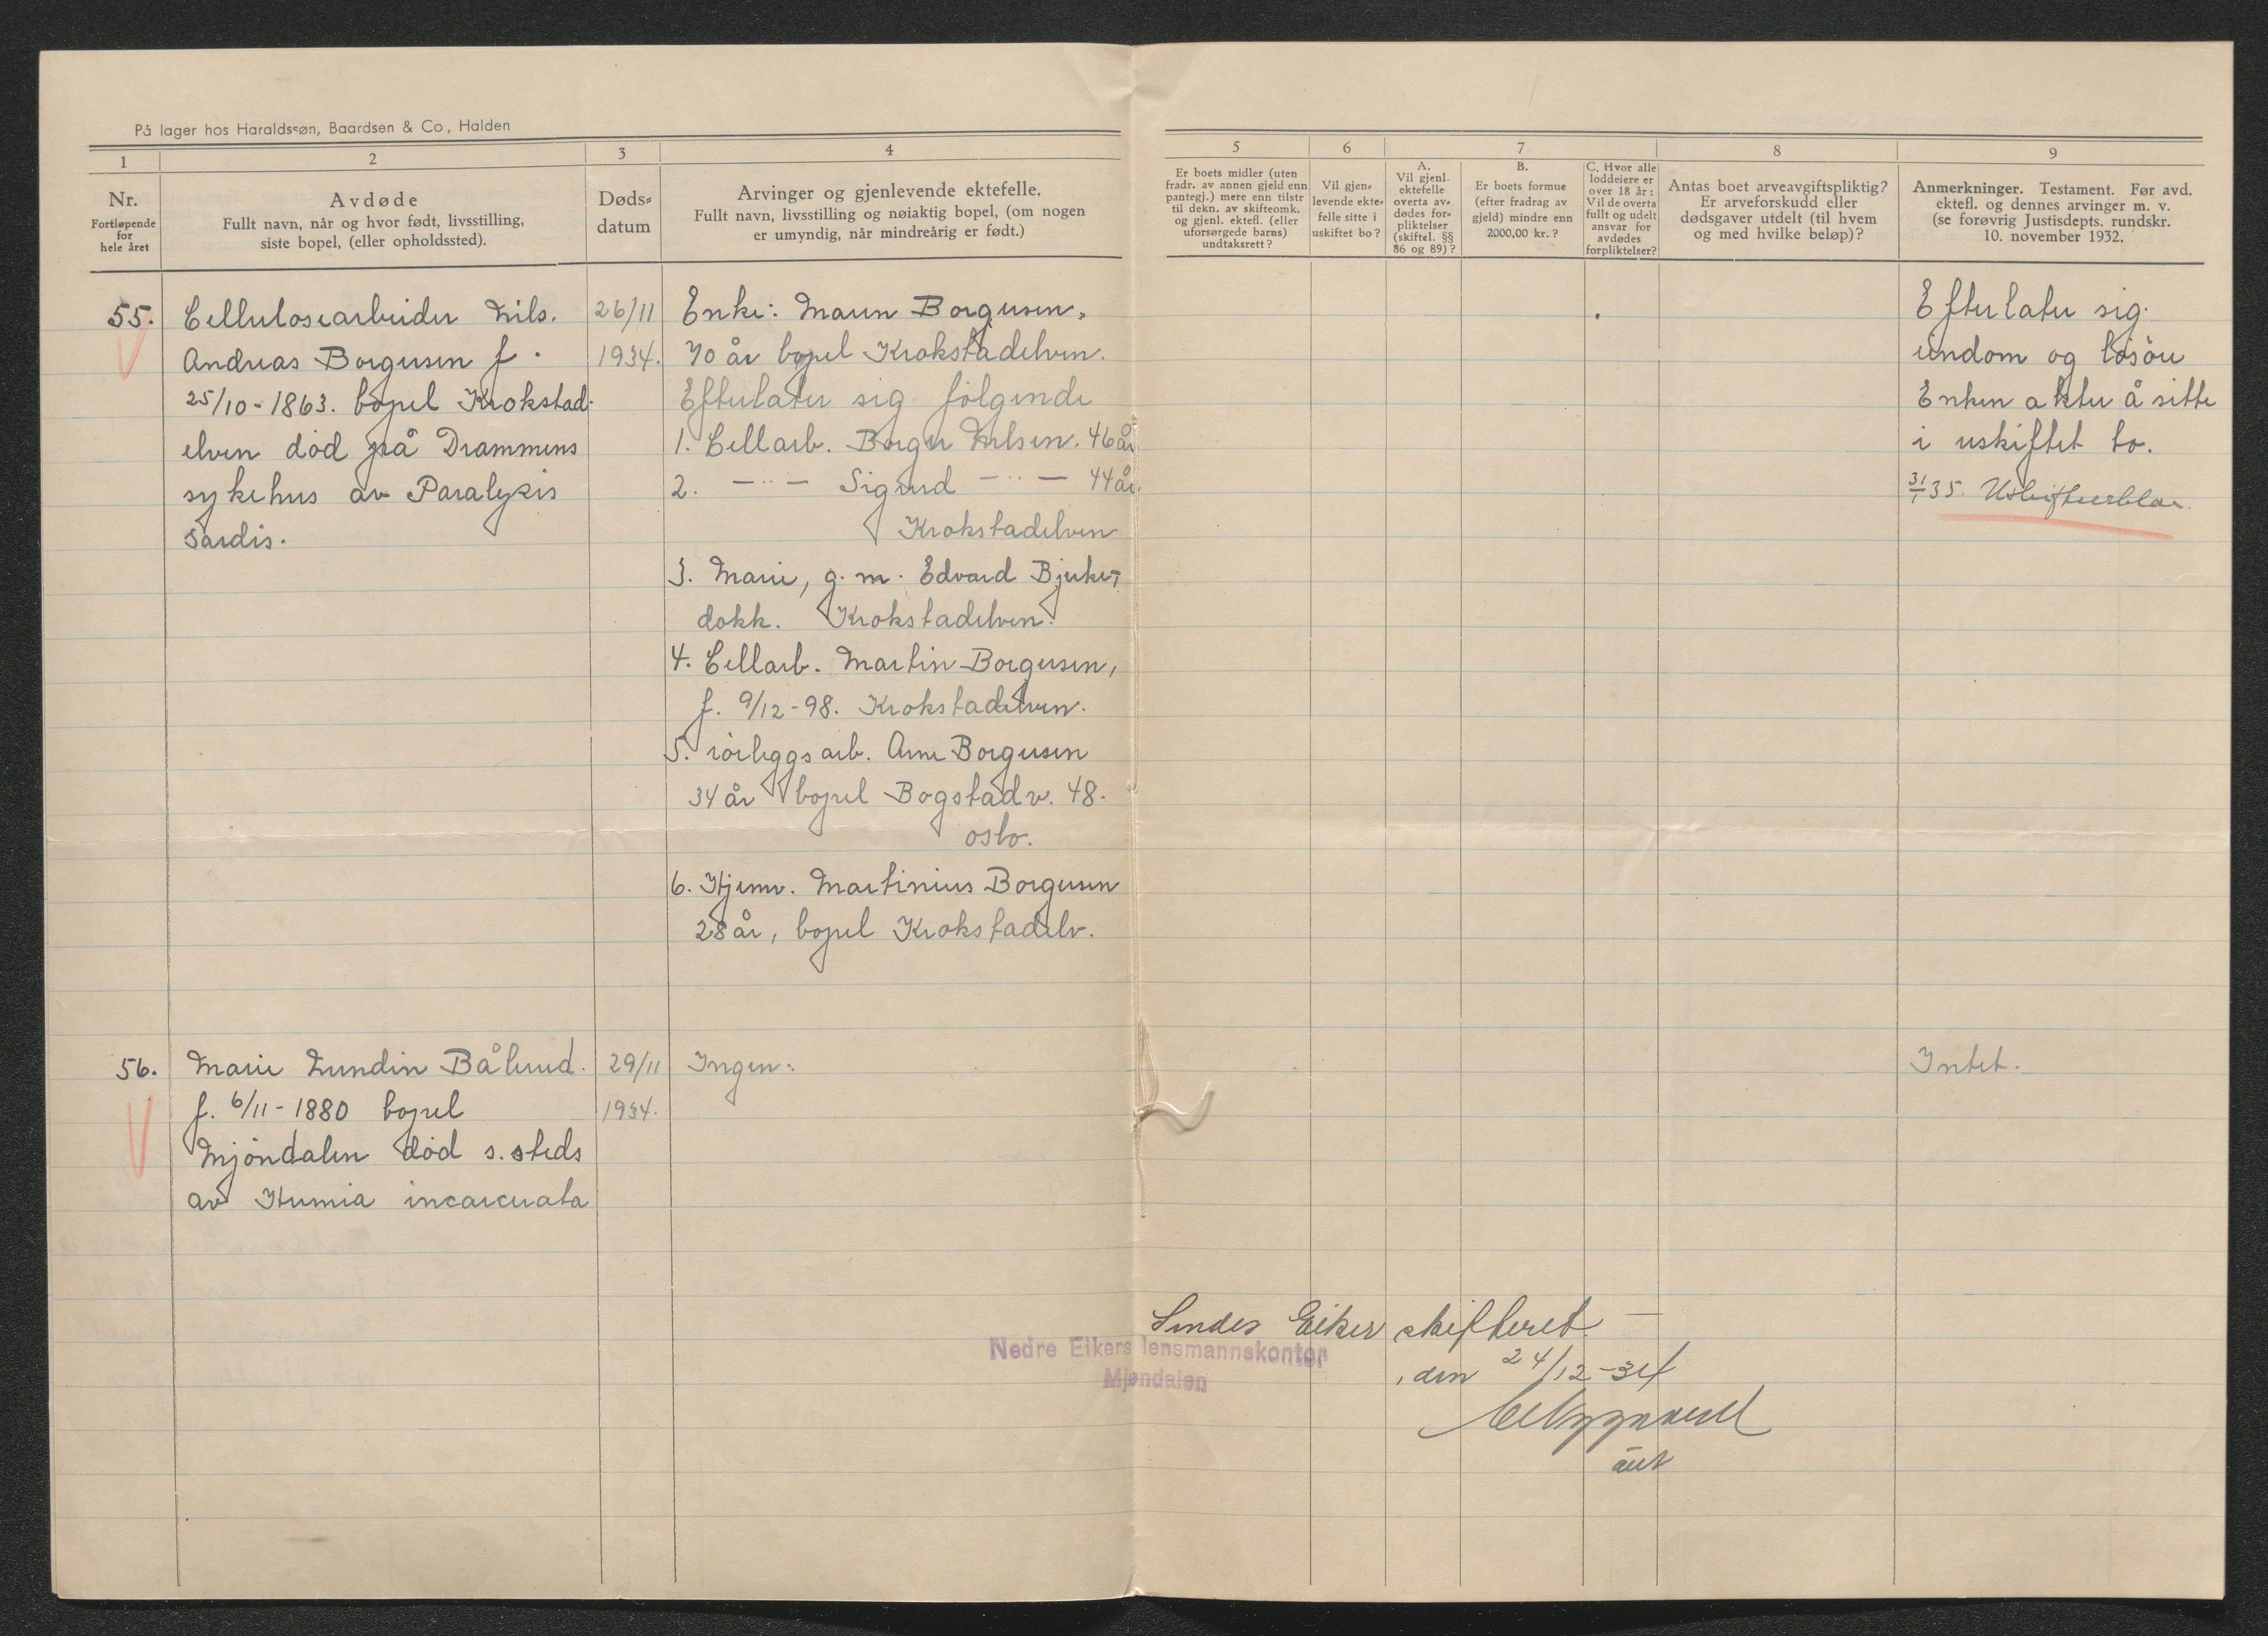 På lager hos Haraldssøn, Baardsen & Co, Halden
1
2
3
4
5
6
7
8
9
Nr.
Fortløpende
for
hele året
Avdøde
Fullt navn, når og hvor født, livsstilling,
siste bopel, (eller opholdssted).
Døds-
datum
Arvinger og gjenlevende ektefelle.
Fullt navn, livsstilling og nøiaktig bopel, (om nogen
er umyndig, når mindreårig er født.)
Er boets midler (uten
fradr. av annen gjeld enn
pantegj.) mere enn tilstr
til dekn. av skifteomk.
og gjenl. ektefl. (eller
uforsørgede barns)
undtaksrett?
Vil gjen-
levende ekte-
felle sitte i
uskiftet bo?
A.
Vil gjenl.
ektefelle
overta av-
dødes for-
pliktelser
(skiftel. §§
86 og 89)?
B.
Er boets formue
(efter fradrag av
gjeld) mindre enn
2000,00 kr.?
C. Hvor alle
loddeiere er
over 18 år:
Vil de overta
fullt og udelt
ansvar for
avdødes
forpliktelser?
Antas boet arveavgiftspliktig?
Er arveforskudd eller
dødsgaver utdelt (til hvem
og med hvilke beløp)?
Anmerkninger. Testament. Før avd.
ektefl. og dennes arvinger m. v.
(se forøvrig Justisdepts. rundskr.
10. november 1932.
55.
Cellulosearbeider Nils.
Andreas Borgersen f.
25/10-1863. bopel Krokstad-
elven død på Drammens
sykehus av Paralysis
26/11
1934.
Enke: Maren Borgersen,
70 år bopel Krokstadelven.
Efterlater sig følgende
1. Cellarb. Borger Nilsen. 46 år
2. —"— Sigurd —"— 44 år.
Krokstadelven
3. Marie, g. m. Edvard Bjerke,
dokk. Krokstadelven.
4. Cellarb. Martin Borgersen,
f. 9/12-98. Krokstadelven.
5. rörleggsarb. Arne Borgersen
34 år bopel Bogstadv. 48.
Oslo.
6. Hjemv. Martinius Borgersen
28 år, bopel Krokstadelv.
Efterlater sig
eiendom og løsöre
Enken akter å sitte
i uskiftet bo.
31/1 35.
56.
Marie Lundin Bålerud.
f. 6/11-1880 bopel
Mjöndalen död s. steds
av Hernia incarcerata
29/11
1934.
Ingen.
Intet.
Sendes Eiker skifteret
, den 24/12-34
Nedre Eikers lensmannskontor
Mjøndalen